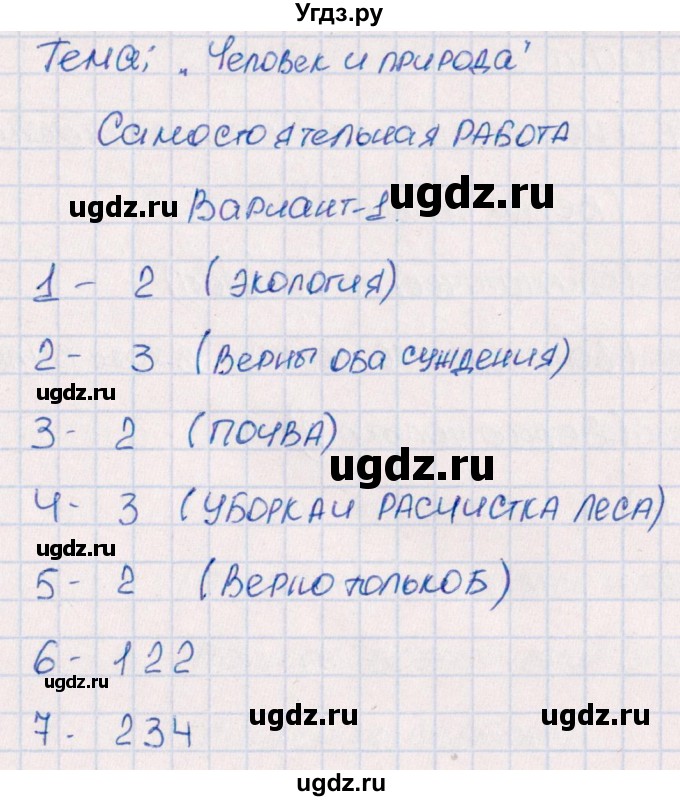 Угдз.ру
Тема: „Человек и природа"
Самостоятельная РАБОТА
ugdz.ru Вариант-1. ugdz.ru
1 - 2 (Экология)
2 - 3 (Верны оба суждения)
ugdz.ru
3 - 2 (ПОЧВА)
ugdz.ru
4 - 3 (УБОРКА И РАСЧИСТКА ЛЕСА)
ugdz.ru
5 - 2 (Верно только Б)
6 - 122
ugdz.ru
7 - 234
ugdz.ru
ugdz.ru
ugdz.ru